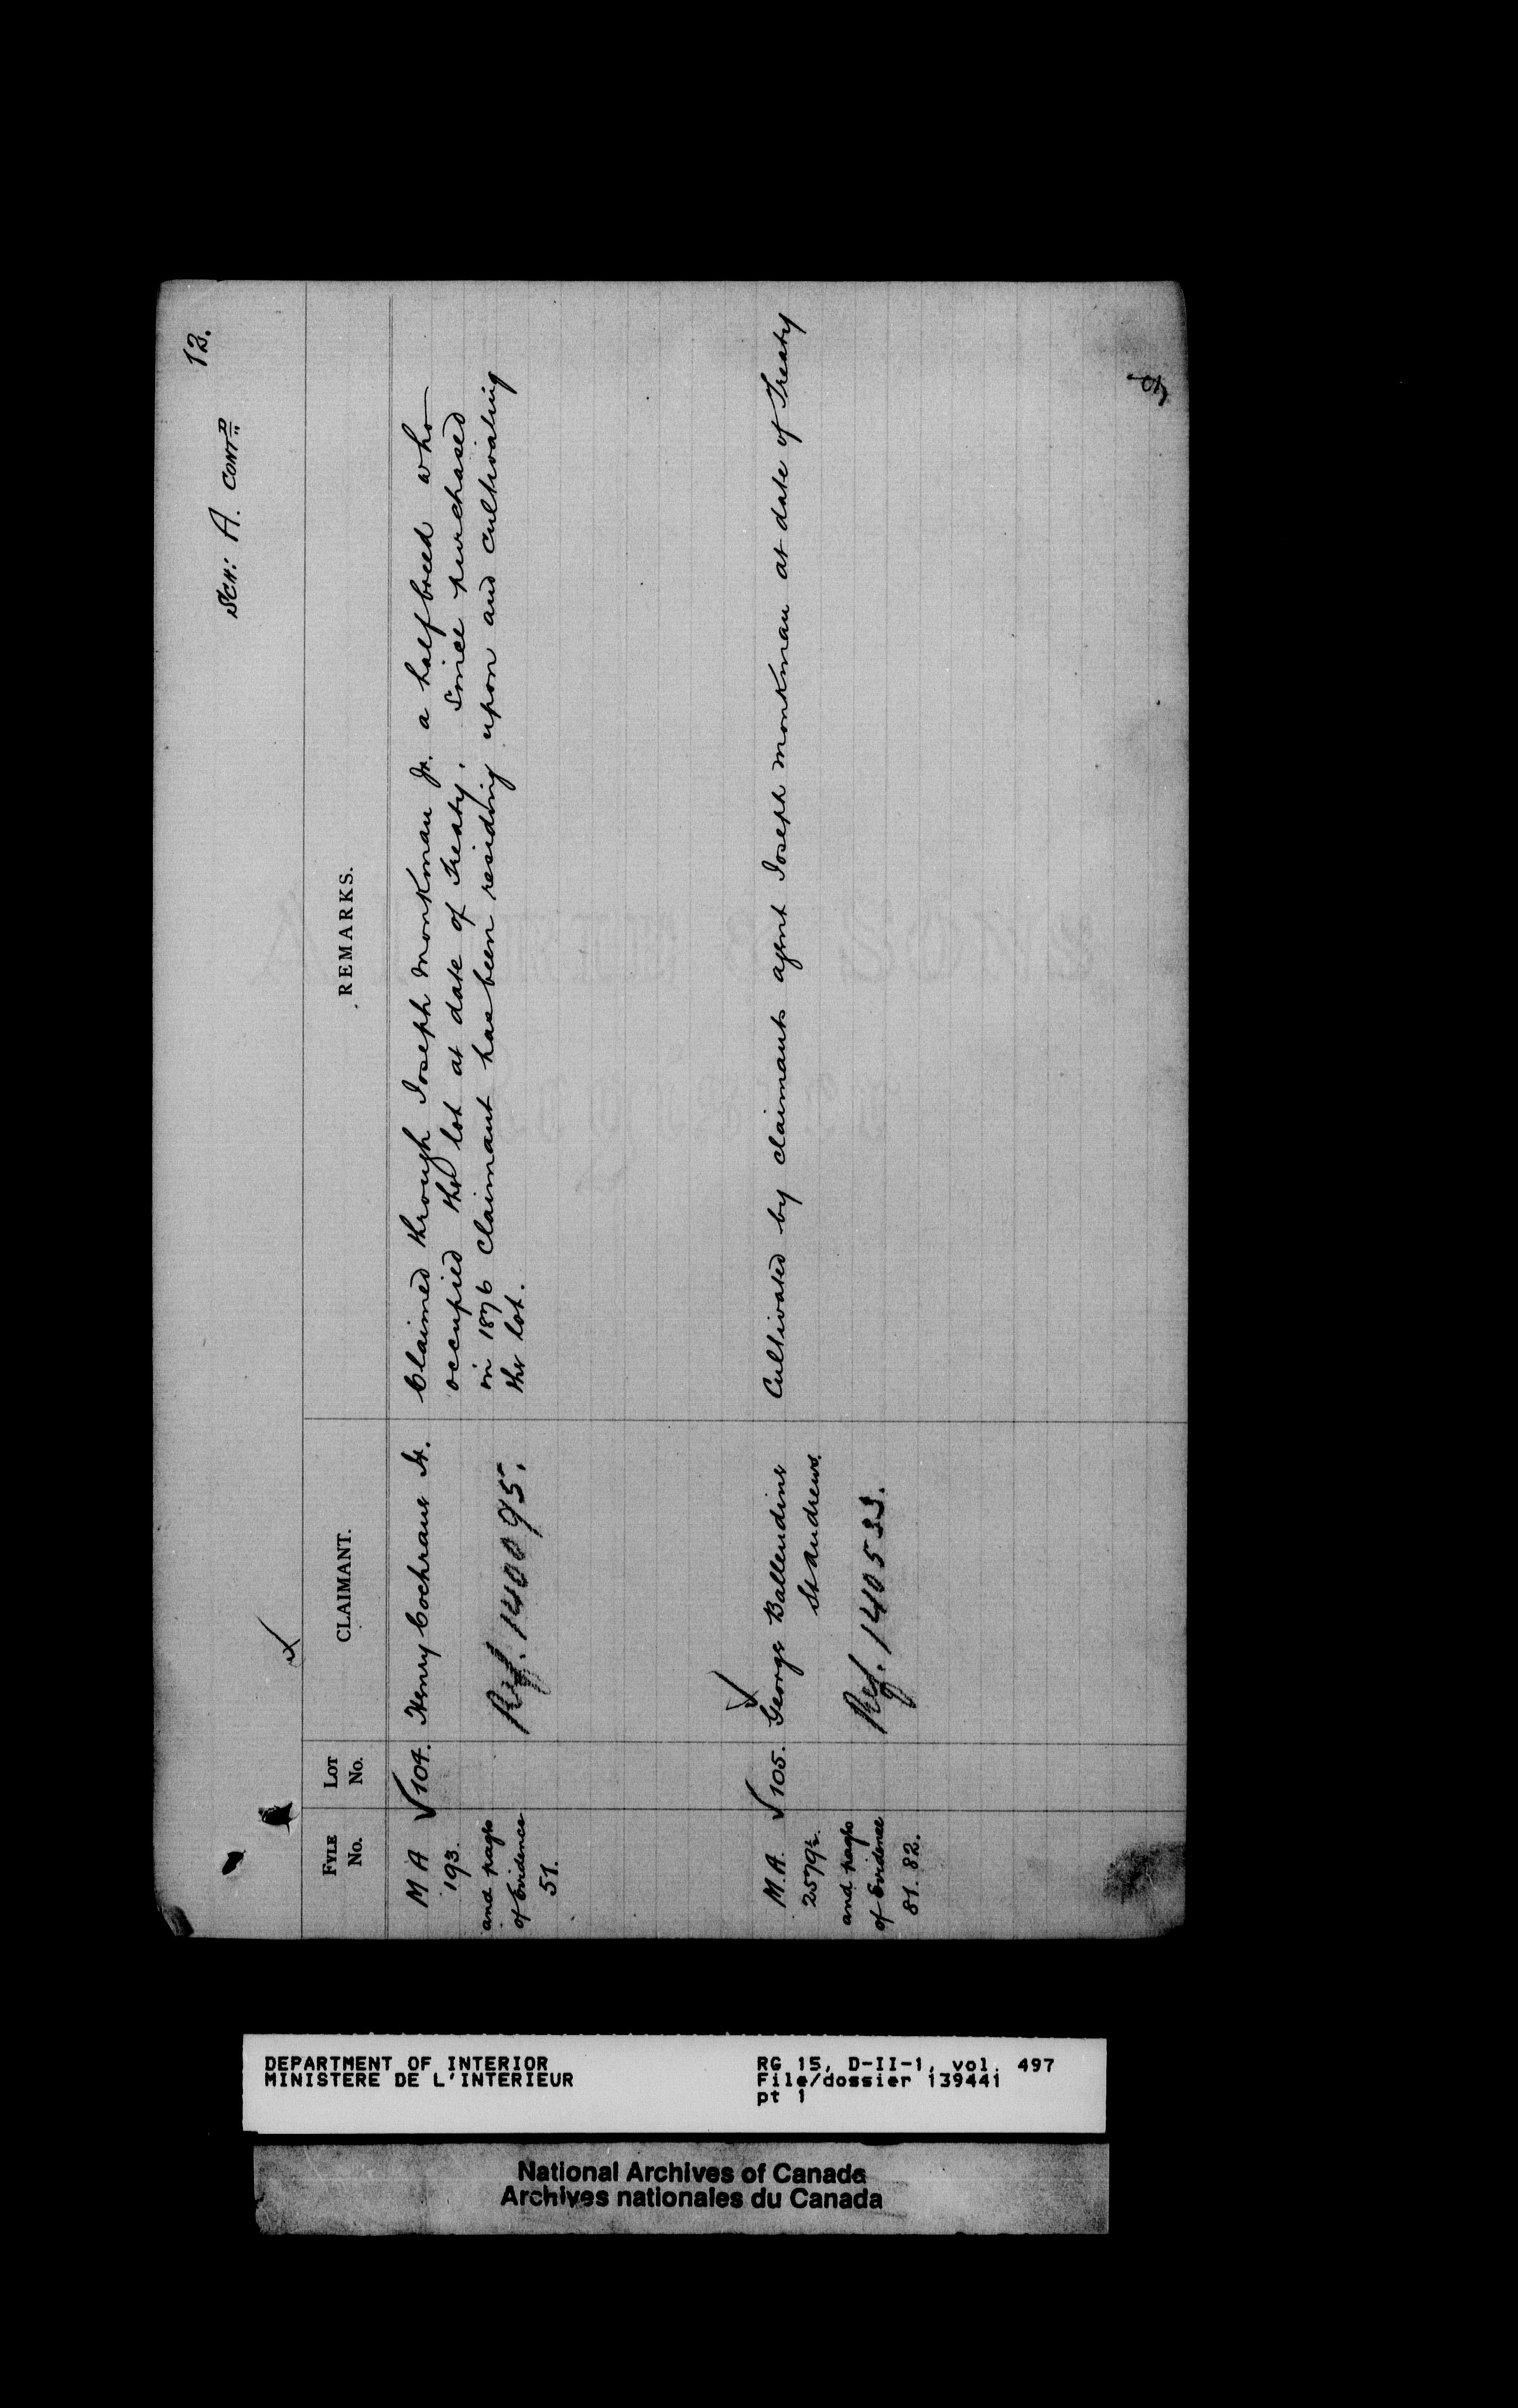 12.
SCH: A. CONTD
FYLE No.
LOT No.
CLAIMANT.
REMARKS.
M A
193.
and pages
of Evidence
51.
104.
Henry Cochrane Sr.
Ref. 140095.
Claimed through Joseph Monkman Jr. a halfbreed who
occupied the lot at date of Treaty. Since purchased
in 1876 claimant has been residing upon and cultivating
the lot.
M.A.
2579½.
and pages
of Evidence
81. 82.
105.
George Ballendine
St Andrews.
Ref. 140533.
Cultivated by claimants agent Joseph Monkman at date of Treaty
DEPARTMENT OF INTERIOR
MINISTERE DE L'INTERIEUR
RG 15, D-II-1, vol. 497
File/dossier 139441
pt 1
National Archives of Canada
Archives nationales du Canada